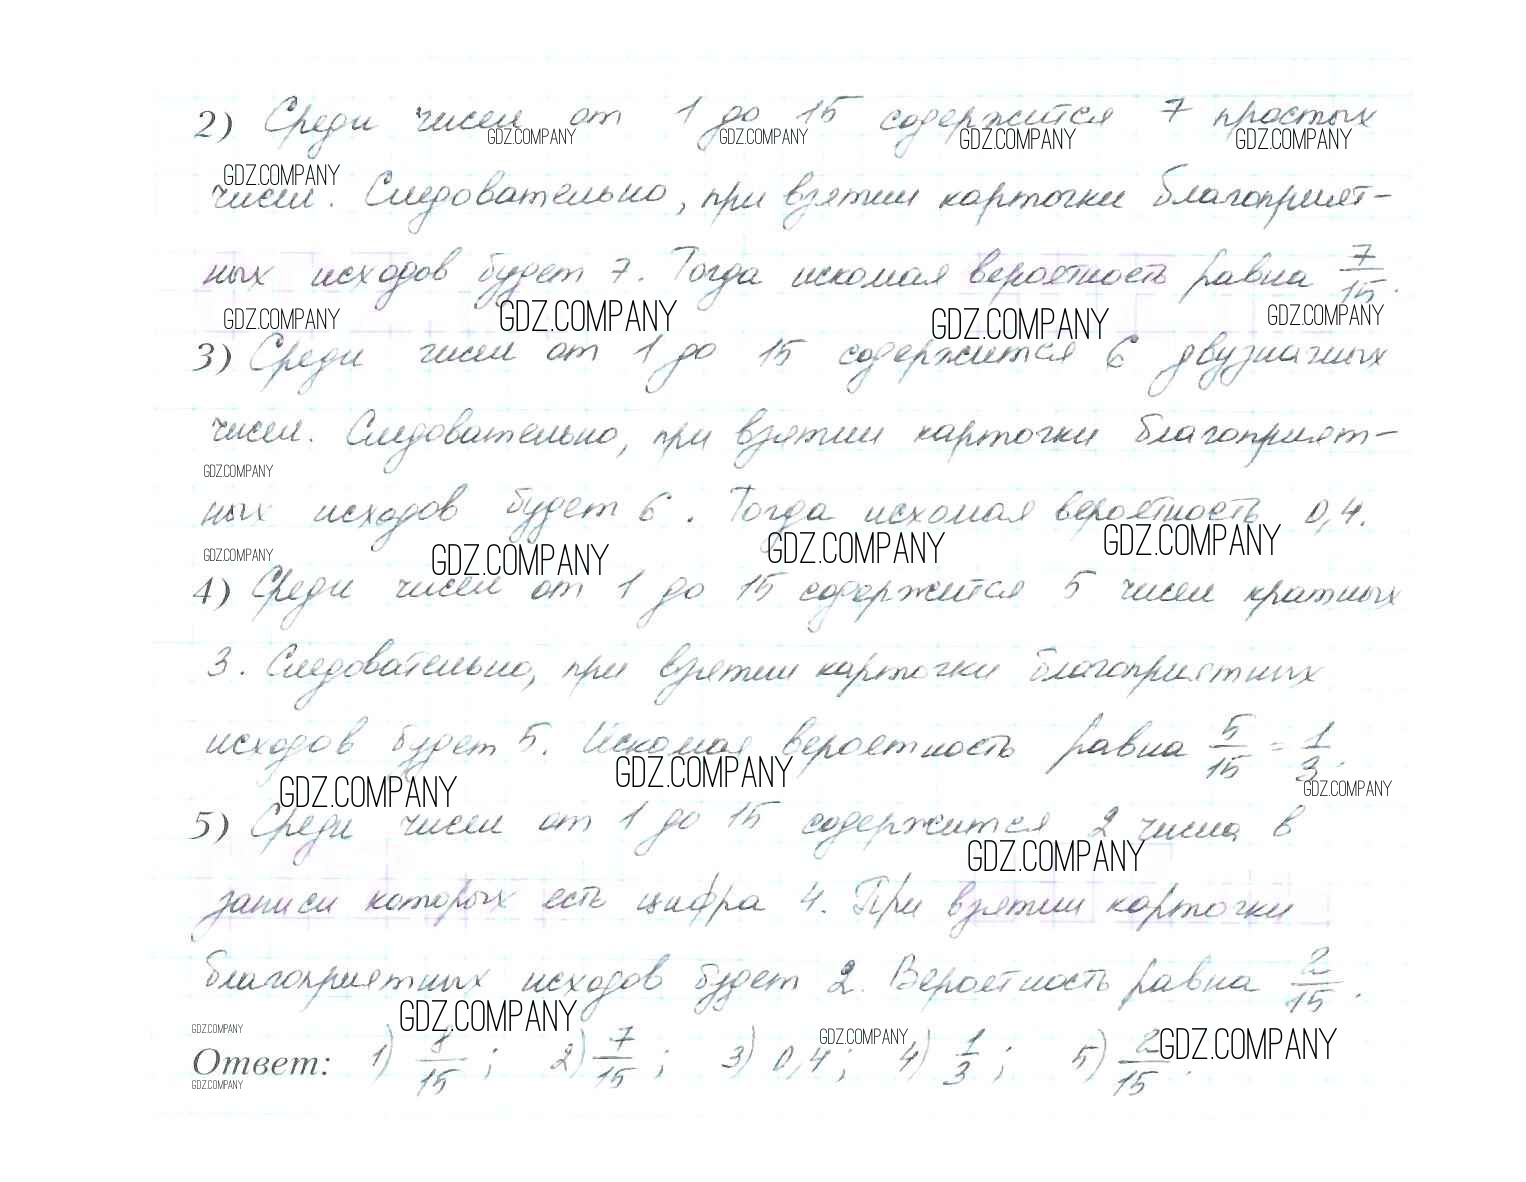 2) Среди чисел от 1 до 15 содержится 7 простых
GDZ.COMPANY GDZ.COMPANY GDZ.COMPANY GDZ.COMPANY
GDZ.COMPANY
чисел. Следовательно, при взятии карточки благоприят-
ных исходов будет 7. Тогда искомая вероятность равна 7/15.
GDZ.COMPANY GDZ.COMPANY GDZ.COMPANY GDZ.COMPANY
3) Среди чисел от 1 до 15 содержится 6 двузначных
чисел. Следовательно, при взятии карточки благоприят-
GDZ.COMPANY
ных исходов будет 6. Тогда искомая вероятность 0,4.
GDZ.COMPANY GDZ.COMPANY GDZ.COMPANY GDZ.COMPANY
4) Среди чисел от 1 до 15 содержится 5 чисел кратных
3. Следовательно, при взятии карточки благоприятных
исходов будет 5. Искомая вероятность равна 5/15 = 1/3.
GDZ.COMPANY GDZ.COMPANY GDZ.COMPANY
5) Среди чисел от 1 до 15 содержится 2 числа, в
GDZ.COMPANY
записи которых есть цифра 4. При взятии карточки
благоприятных исходов будет 2. Вероятность равна 2/15.
GDZ.COMPANY GDZ.COMPANY GDZ.COMPANY GDZ.COMPANY
Ответ: 1) 1/15; 2) 7/15; 3) 0,4; 4) 1/3; 5) 2/15.
GDZ.COMPANY